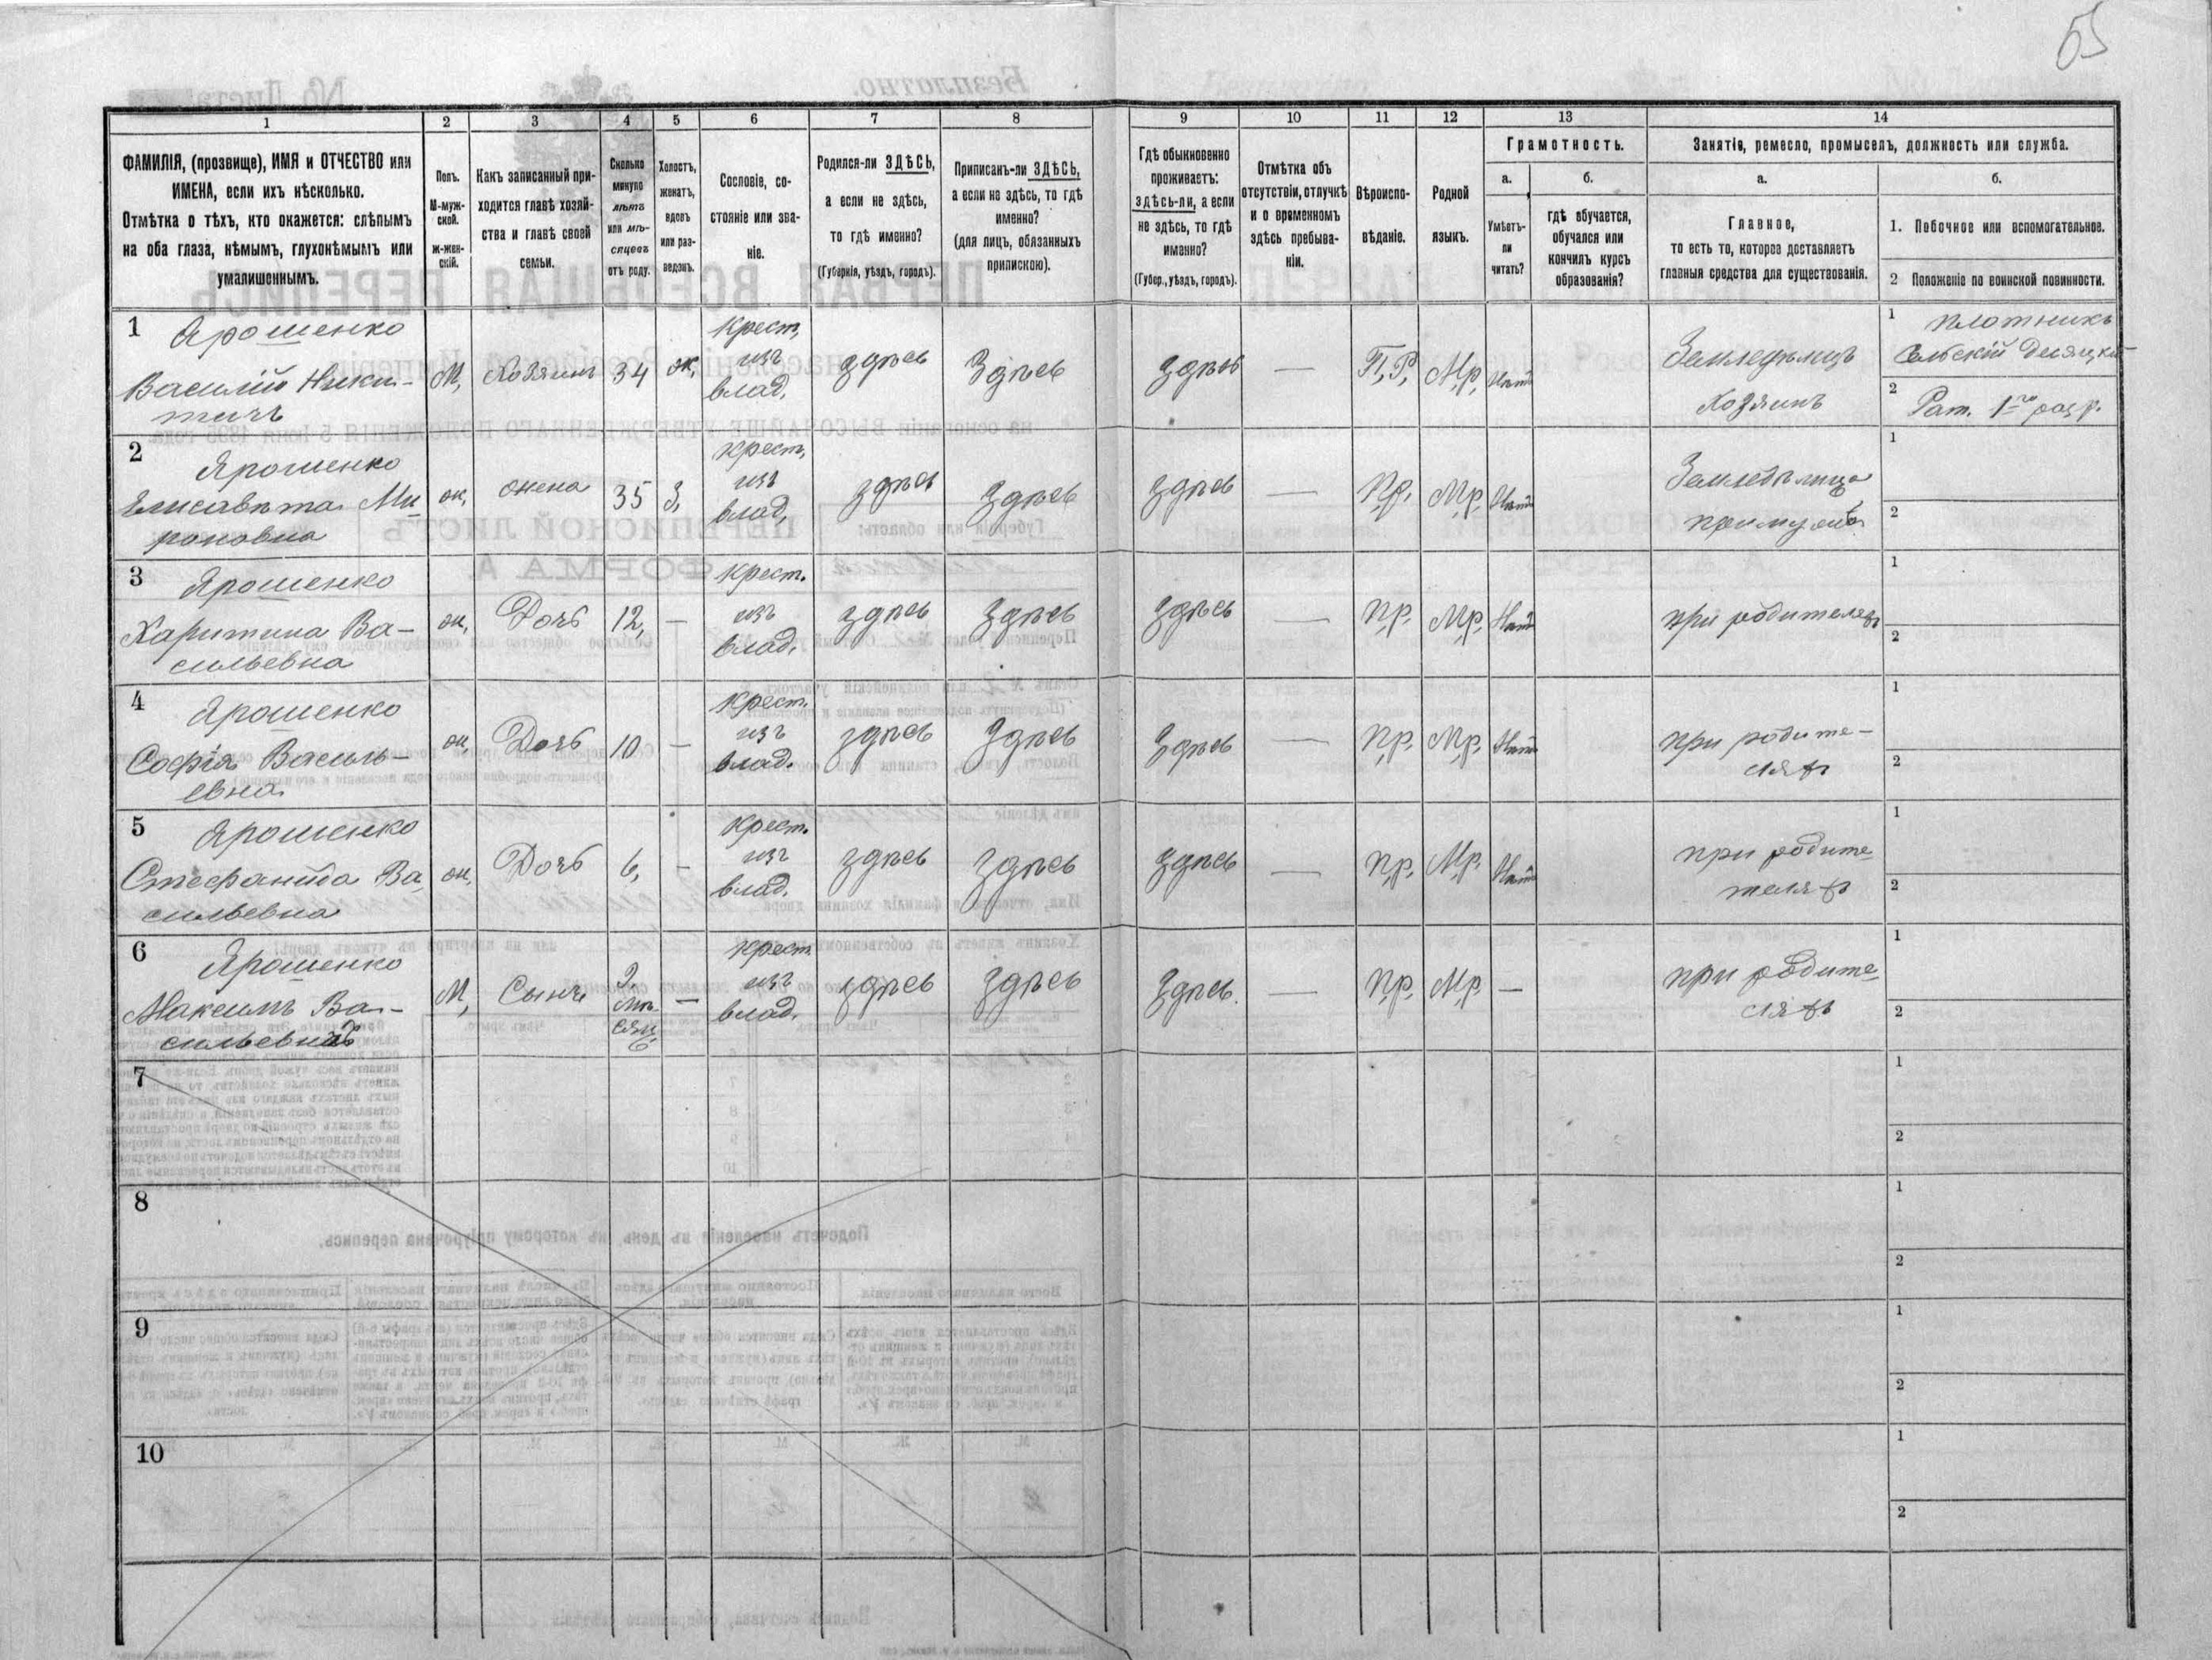 65
1 2 3 4 5 6 7 8 9 10 11 12 13 14
ФАМИЛІЯ, (прозвище), ИМЯ и ОТЧЕСТВО или
ИМЕНА, если ихъ нѣсколько.
Отмѣтка о тѣхъ, кто окажется: слѣпымъ
на оба глаза, нѣмымъ, глухонѣмымъ или
умалишеннымъ.
Полъ.
М-муж-
ской.
ж-жен-
скій.
Какъ записанный при-
ходится главѣ хозяй-
ства и главѣ своей
семьи.
Сколько
минуло
лѣтъ
или мѣ-
сяцевъ
отъ роду.
Холостъ,
женатъ,
вдовъ
или раз-
веденъ.
Сословіе, со-
стояніе или зва-
ніе.
Родился-ли ЗДѢСЬ,
а если не здѣсь,
то гдѣ именно?
(Губернія, уѣздъ, городъ).
Приписанъ-ли ЗДѢСЬ,
а если не здѣсь, то гдѣ
именно?
(для лицъ, обязанныхъ
припискою).
Гдѣ обыкновенно
проживаетъ:
здѣсь-ли, а если
не здѣсь, то гдѣ
именно?
(Губер., уѣздъ, городъ).
Отмѣтка объ
отсутствіи, отлучкѣ
и о временномъ
здѣсь пребыва-
ніи.
Вѣроиспо-
вѣданіе.
Родной
языкъ.
Грамотность.
а.
Умѣетъ-
ли
читать?
б.
гдѣ обучается,
обучался или
кончилъ курсъ
образованія?
Занятіе, ремесло, промыселъ, должность или служба.
а.
Главное,
то есть то, которое доставляетъ
главныя средства для существованія.
б.
1. Побочное или вспомогательное.
2 Положеніе по воинской повинности.
1
Ярошенко
Василій Ники-
тичъ
М,
Хозяинъ
34
ж,
Крест,
изъ
влад,
здѣсь
Здѣсь
здѣсь
—
П,Р,
М,р,
Нѣтъ
Земледѣлецъ
Хозяинъ
1 плотникъ
Сельскій Десяцкій
2 Рат. 1го разр.
2
Ярошенко
Елисавѣта Ми
роновна
ж,
жена
35
З,
крест,
изъ
влад,
здѣсь
здѣсь
здѣсь
—
Пр,
М,р,
Нѣтъ
Земледѣлица
при мужѣ
1
2
3
Ярошенко
Харитина Ва-
сильевна
ж,
Дочь
12,
—
Крест.
изъ
влад.
здѣсь
здѣсь
здѣсь
—
П,р.
М,р,
Нѣтъ
при родителяхъ
1
2
4
Ярошенко
Софія Василь-
евна
ж,
Дочь
10
—
Крест.
изъ
влад.
здѣсь
здѣсь
здѣсь
—
П,р.
М,р,
Нѣтъ
при родите-
ляхъ
1
2
5
Ярошенко
Стефанида Ва
сильевна
ж,
Дочь
6,
—
Крест.
изъ
влад.
здѣсь
здѣсь
здѣсь
—
П,р.
М,р.
Нѣтъ
при родите
теляхъ
1
2
6
Ярошенко
Максимъ Ва-
сильевичъ
М,
Сынъ
2,
мѣ
сяц.
—
крест.
изъ
влад.
здѣсь
здѣсь
здѣсь.
—
П,р.
М,р.
—
при родите
ляхъ
1
2
7
1
2
8
1
2
9
1
2
10
1
2